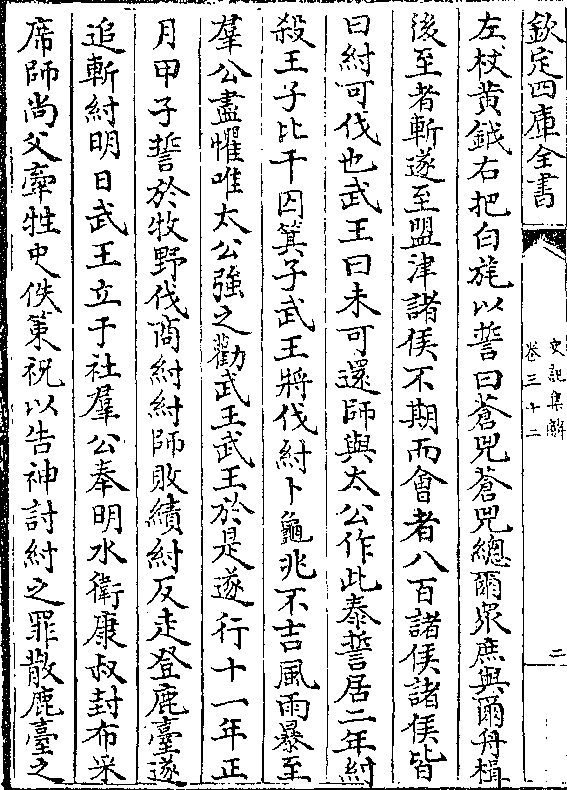 欽定四庫全書
史記集解
卷三十二
二
左杖黄鉞右把白旄以誓曰蒼兕蒼兕總爾眾庶與爾舟楫
後至者斬遂至盟津諸侯不期而會者八百諸侯諸侯皆
曰紂可伐也武王曰未可還師與太公作此泰誓居二年紂
殺王子比干囚箕子武王將伐紂卜龜兆不吉風雨暴至
羣公盡懼唯太公強之勸武王武王於是遂行十一年正
月甲子誓於牧野伐商紂紂師敗績紂反走登鹿臺遂
追斬紂明日武王立于社羣公奉明水衛康叔封布采
席師尚父牽牲史佚策祝以告神討紂之罪散鹿臺之